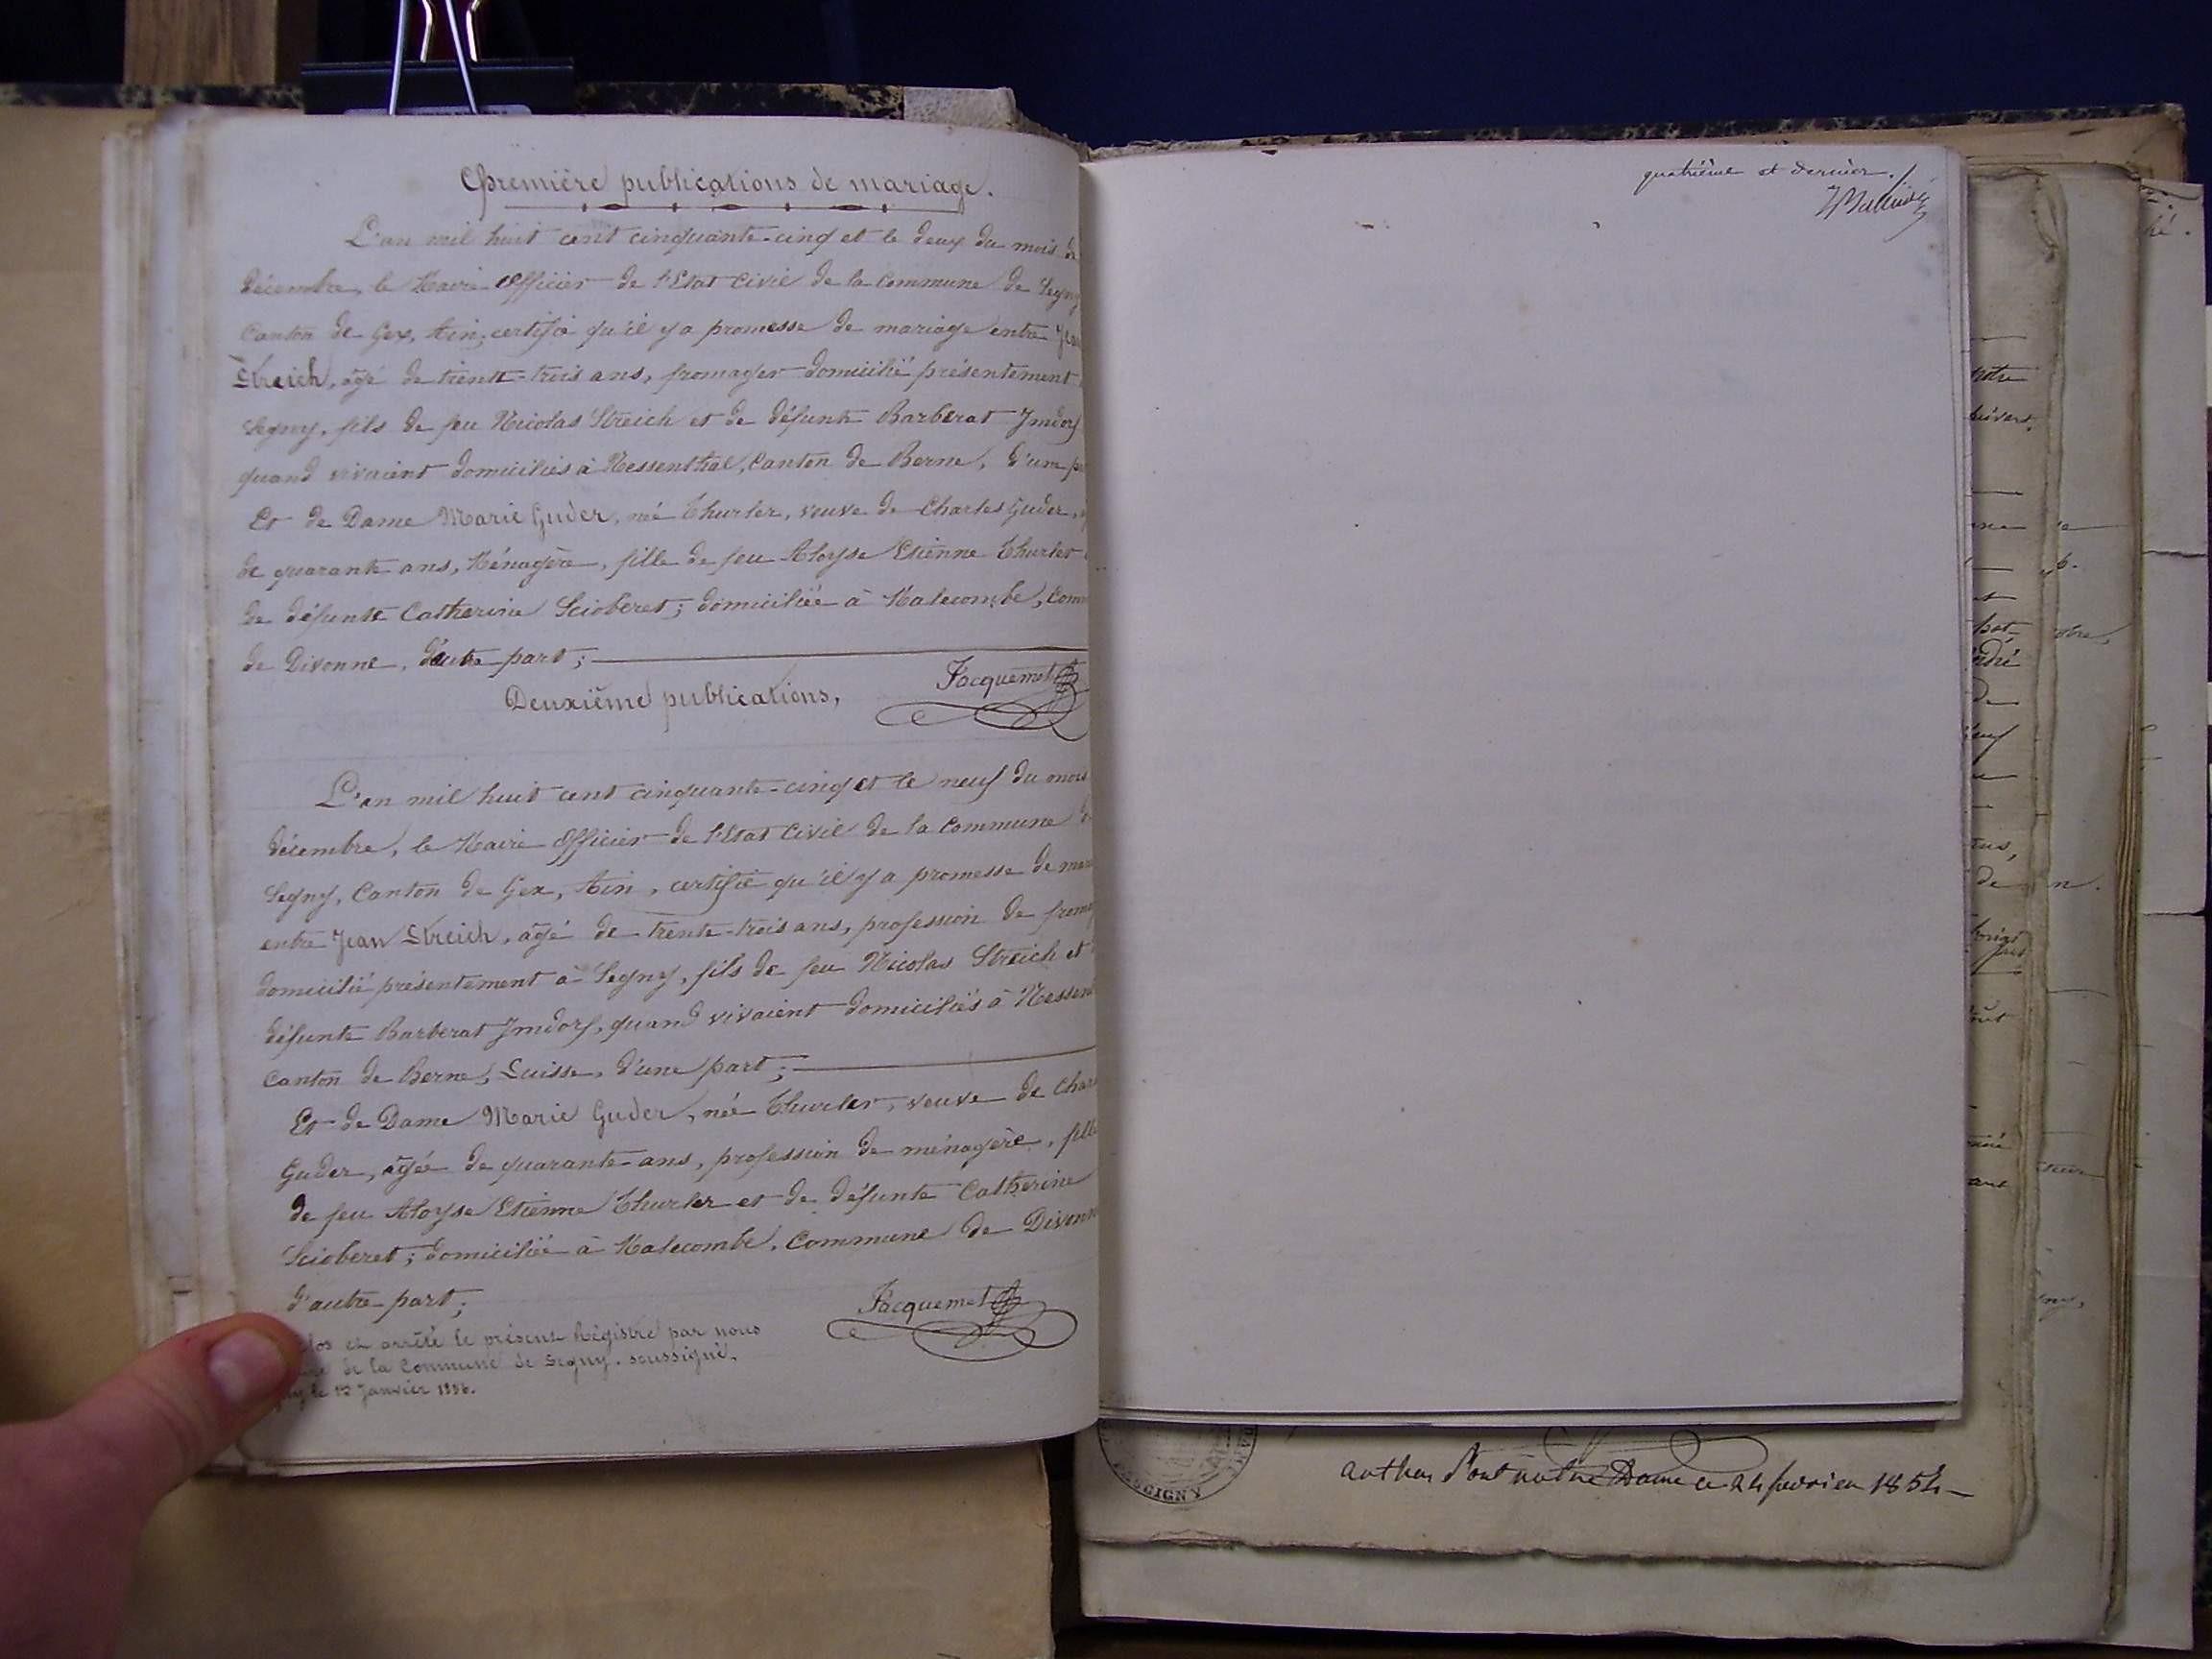 Première publications de mariage.
L'an mil huit cent cinquante-cinq et le deux du mois de
décembre, le Maire Officier de l'Etat Civil de la Commune de Segny
Canton de Gex, Ain, certifie qu'il y a promesse de mariage entre Jean
Streich, âgé de trente-trois ans, fromager domicilié présentement
Segny, fils de feu Nicolas Streich et de défunte Barberat Jmdorf
quand vivaient domiciliés à Nessenthal, Canton de Berne, d'une
Et de Dame Marie Guder, née Thurler, veuve de Charles Guder,
de quarante ans, Ménagère, fille de feu Aloyse Etienne Thurler
de défunte Catherine Scioberet; domiciliée à Malecombe, Com
de Divonne, d'autre part;
Jacquemet
Deuxième publications,
L'an mil huit cent cinquante-cinq et le neuf du mois
décembre, le Maire Officier de l'Etat Civil de la Commune
Segny, Canton de Gex, Ain, certifie qu'il y a promesse de mar
entre Jean Streich, âgé de trente-trois ans, profession de from
domicilié présentement à Segny, fils de feu Nicolas Streich et
défunte Barberat Jmdorf, quand vivaient domiciliés à Nessen
Canton de Berne, Suisse, d'une part;
Et de Dame Marie Guder, née Thurler, veuve de Char
Guder, âgée de quarante-ans, profession de ménagère, fille
de feu Aloyse Etienne Thurler et de défunte Catherine
Scioberet; domiciliée à Malecombe, Commune de Divonne
d'autre part;
Jacquemet
clos et arrêté le présent Régistre par nous
de la Commune de Segny, soussigné,
le 12 Janvier 1856.
quatrième et dernier.
SEGIGNY
anthon Pont notre Dame ce 24 fevrier 1854